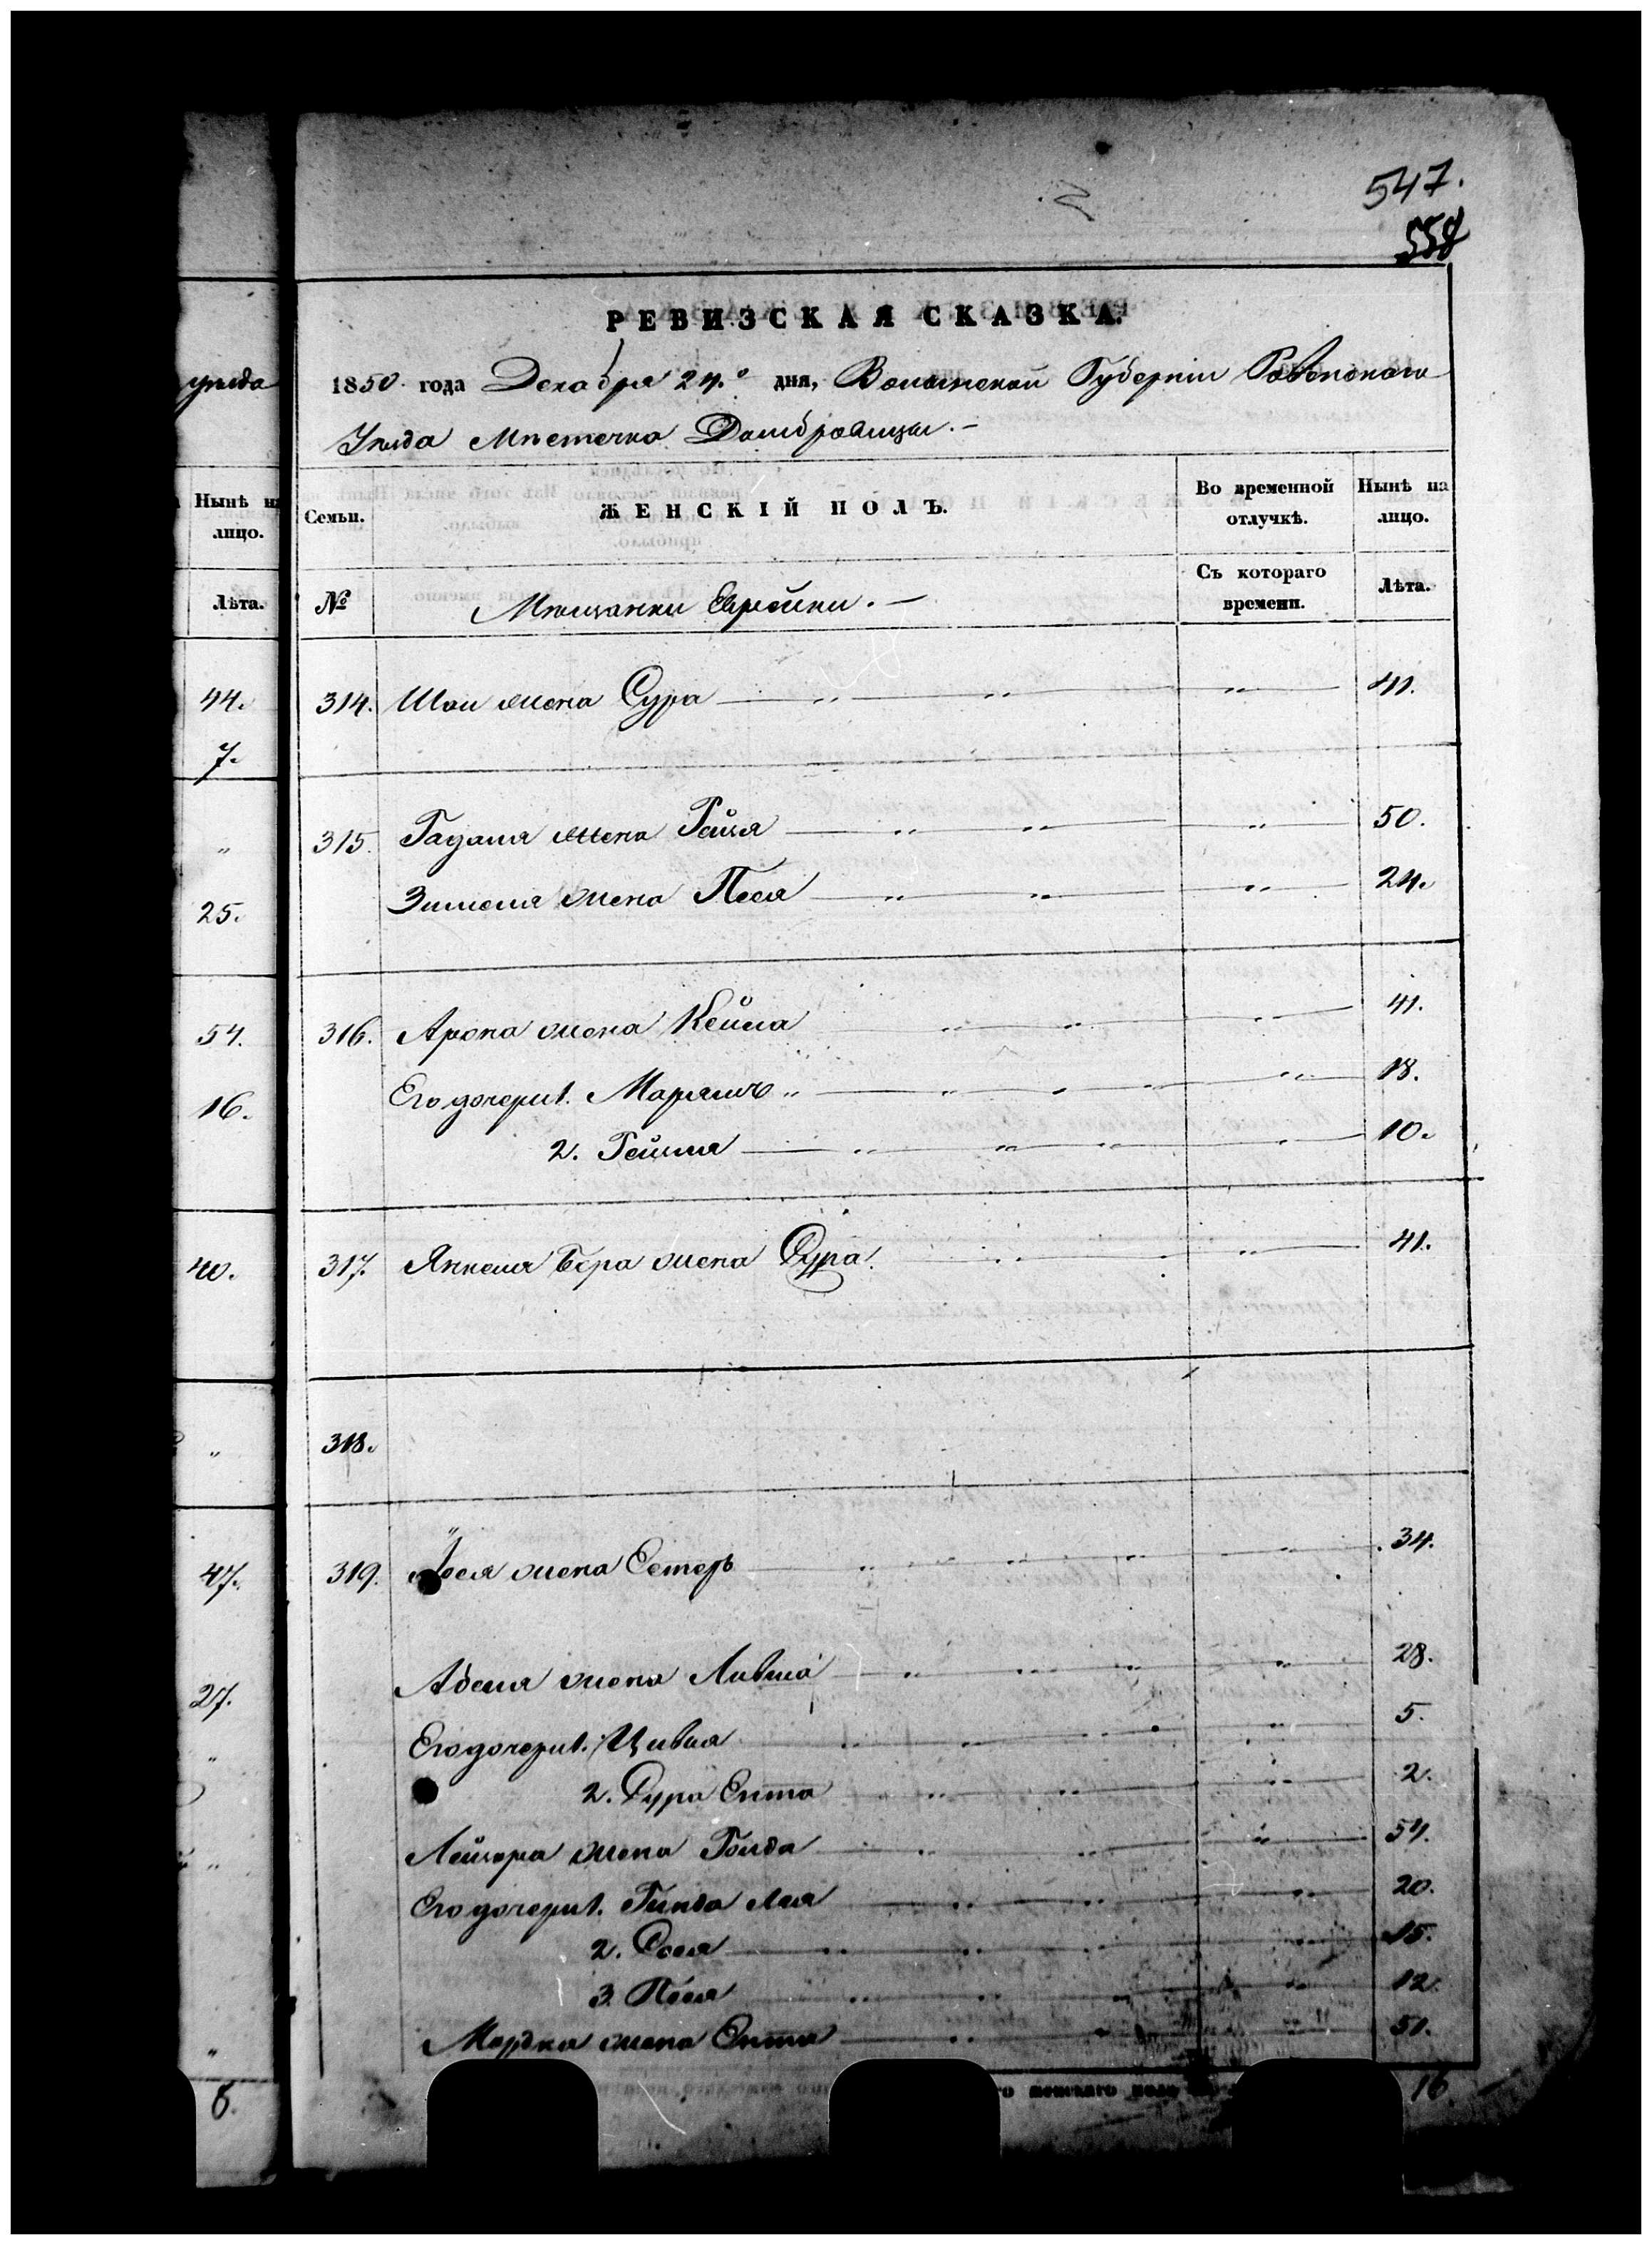 547.
558
РЕВИЗСКАЯ СКАЗКА.
уѣзда
1850 года Декабря 24.о дня, Волынской Губерніи Ровенского
Уѣзда Мѣстечка Домбровицы. —
Нынѣ на лицо.
Лѣта.
44.
7.
"
25.
54.
16.
40.
"
47.
27.
"
"
"
6.
Семьи.
ЖЕНСКІЙ ПОЛЪ.
Во временной отлучкѣ.
Нынѣ на лицо.
№
Мѣщанки Еврейки. —
Съ котораго времени.
Лѣта.
314. Шои жена Сура — " — " — " — 41.
315. Гадаля жена Рейзя — " — " — " — 50.
Зишеля жена Песя — " — " — " — 24.
316. Арона жена Кейла " — " — " — 41.
Его дочери 1. Марямъ " — " — " — 18.
2. Рейзля — " — " — " — 10.
317. Янкеля Бера жена Сура. " — " — 41.
318.
319. Іося жена Естеръ — " — " — " — 34.
Абеля жена Ливша — " — " — " — 28.
Его дочери 1. Цивья — " — " — " — 5.
2. Сура Ента — " — " — " — 2.
Лейзора жена Голда — " — " — " — 54.
Его дочери 1. Гинда Лея — " — " — " — 20.
2. Сося — " — " — " — 15.
3. Песя — " — " — " — 12.
Мордка жена Ента — " — " — 51.
го женскаго пола
16